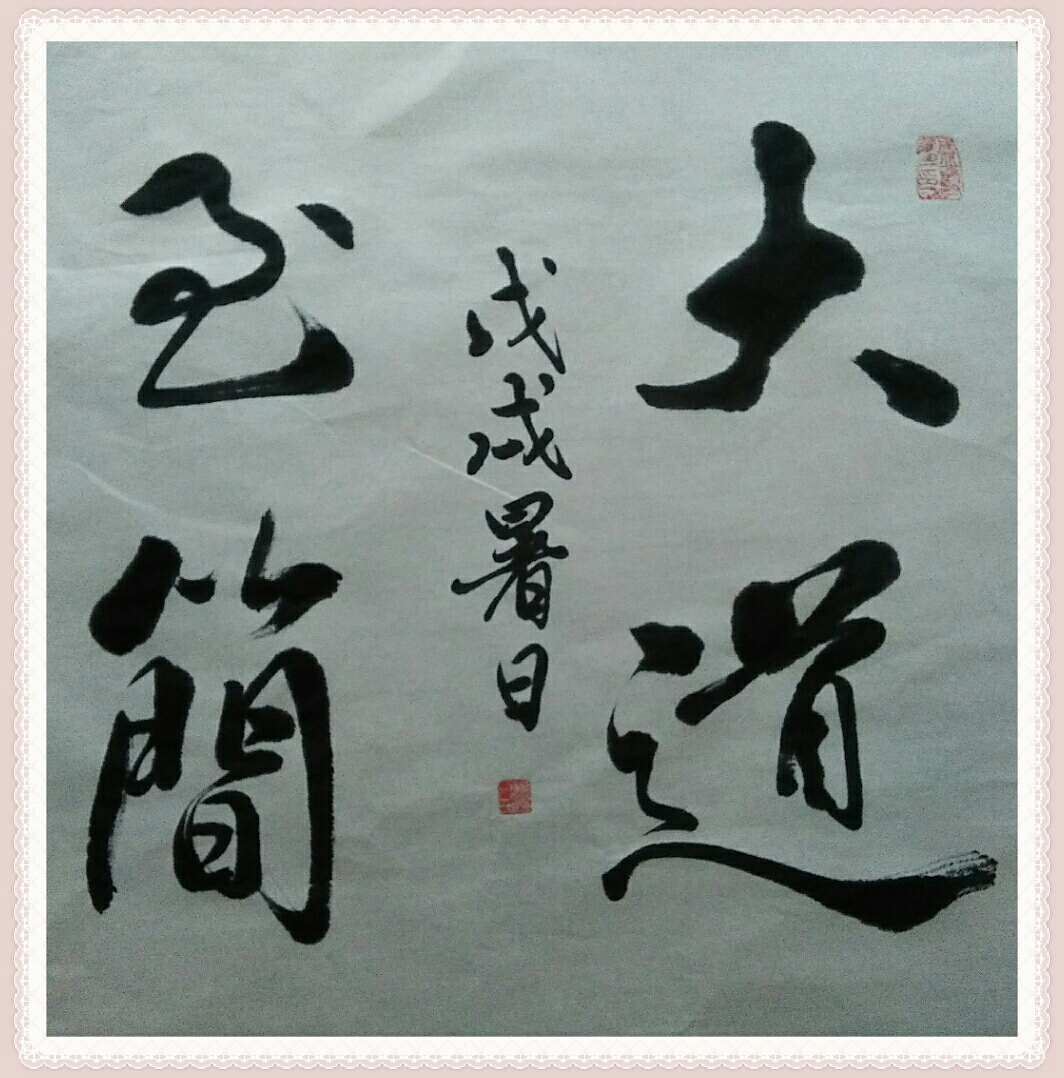 大道
戊戌暑日
至簡